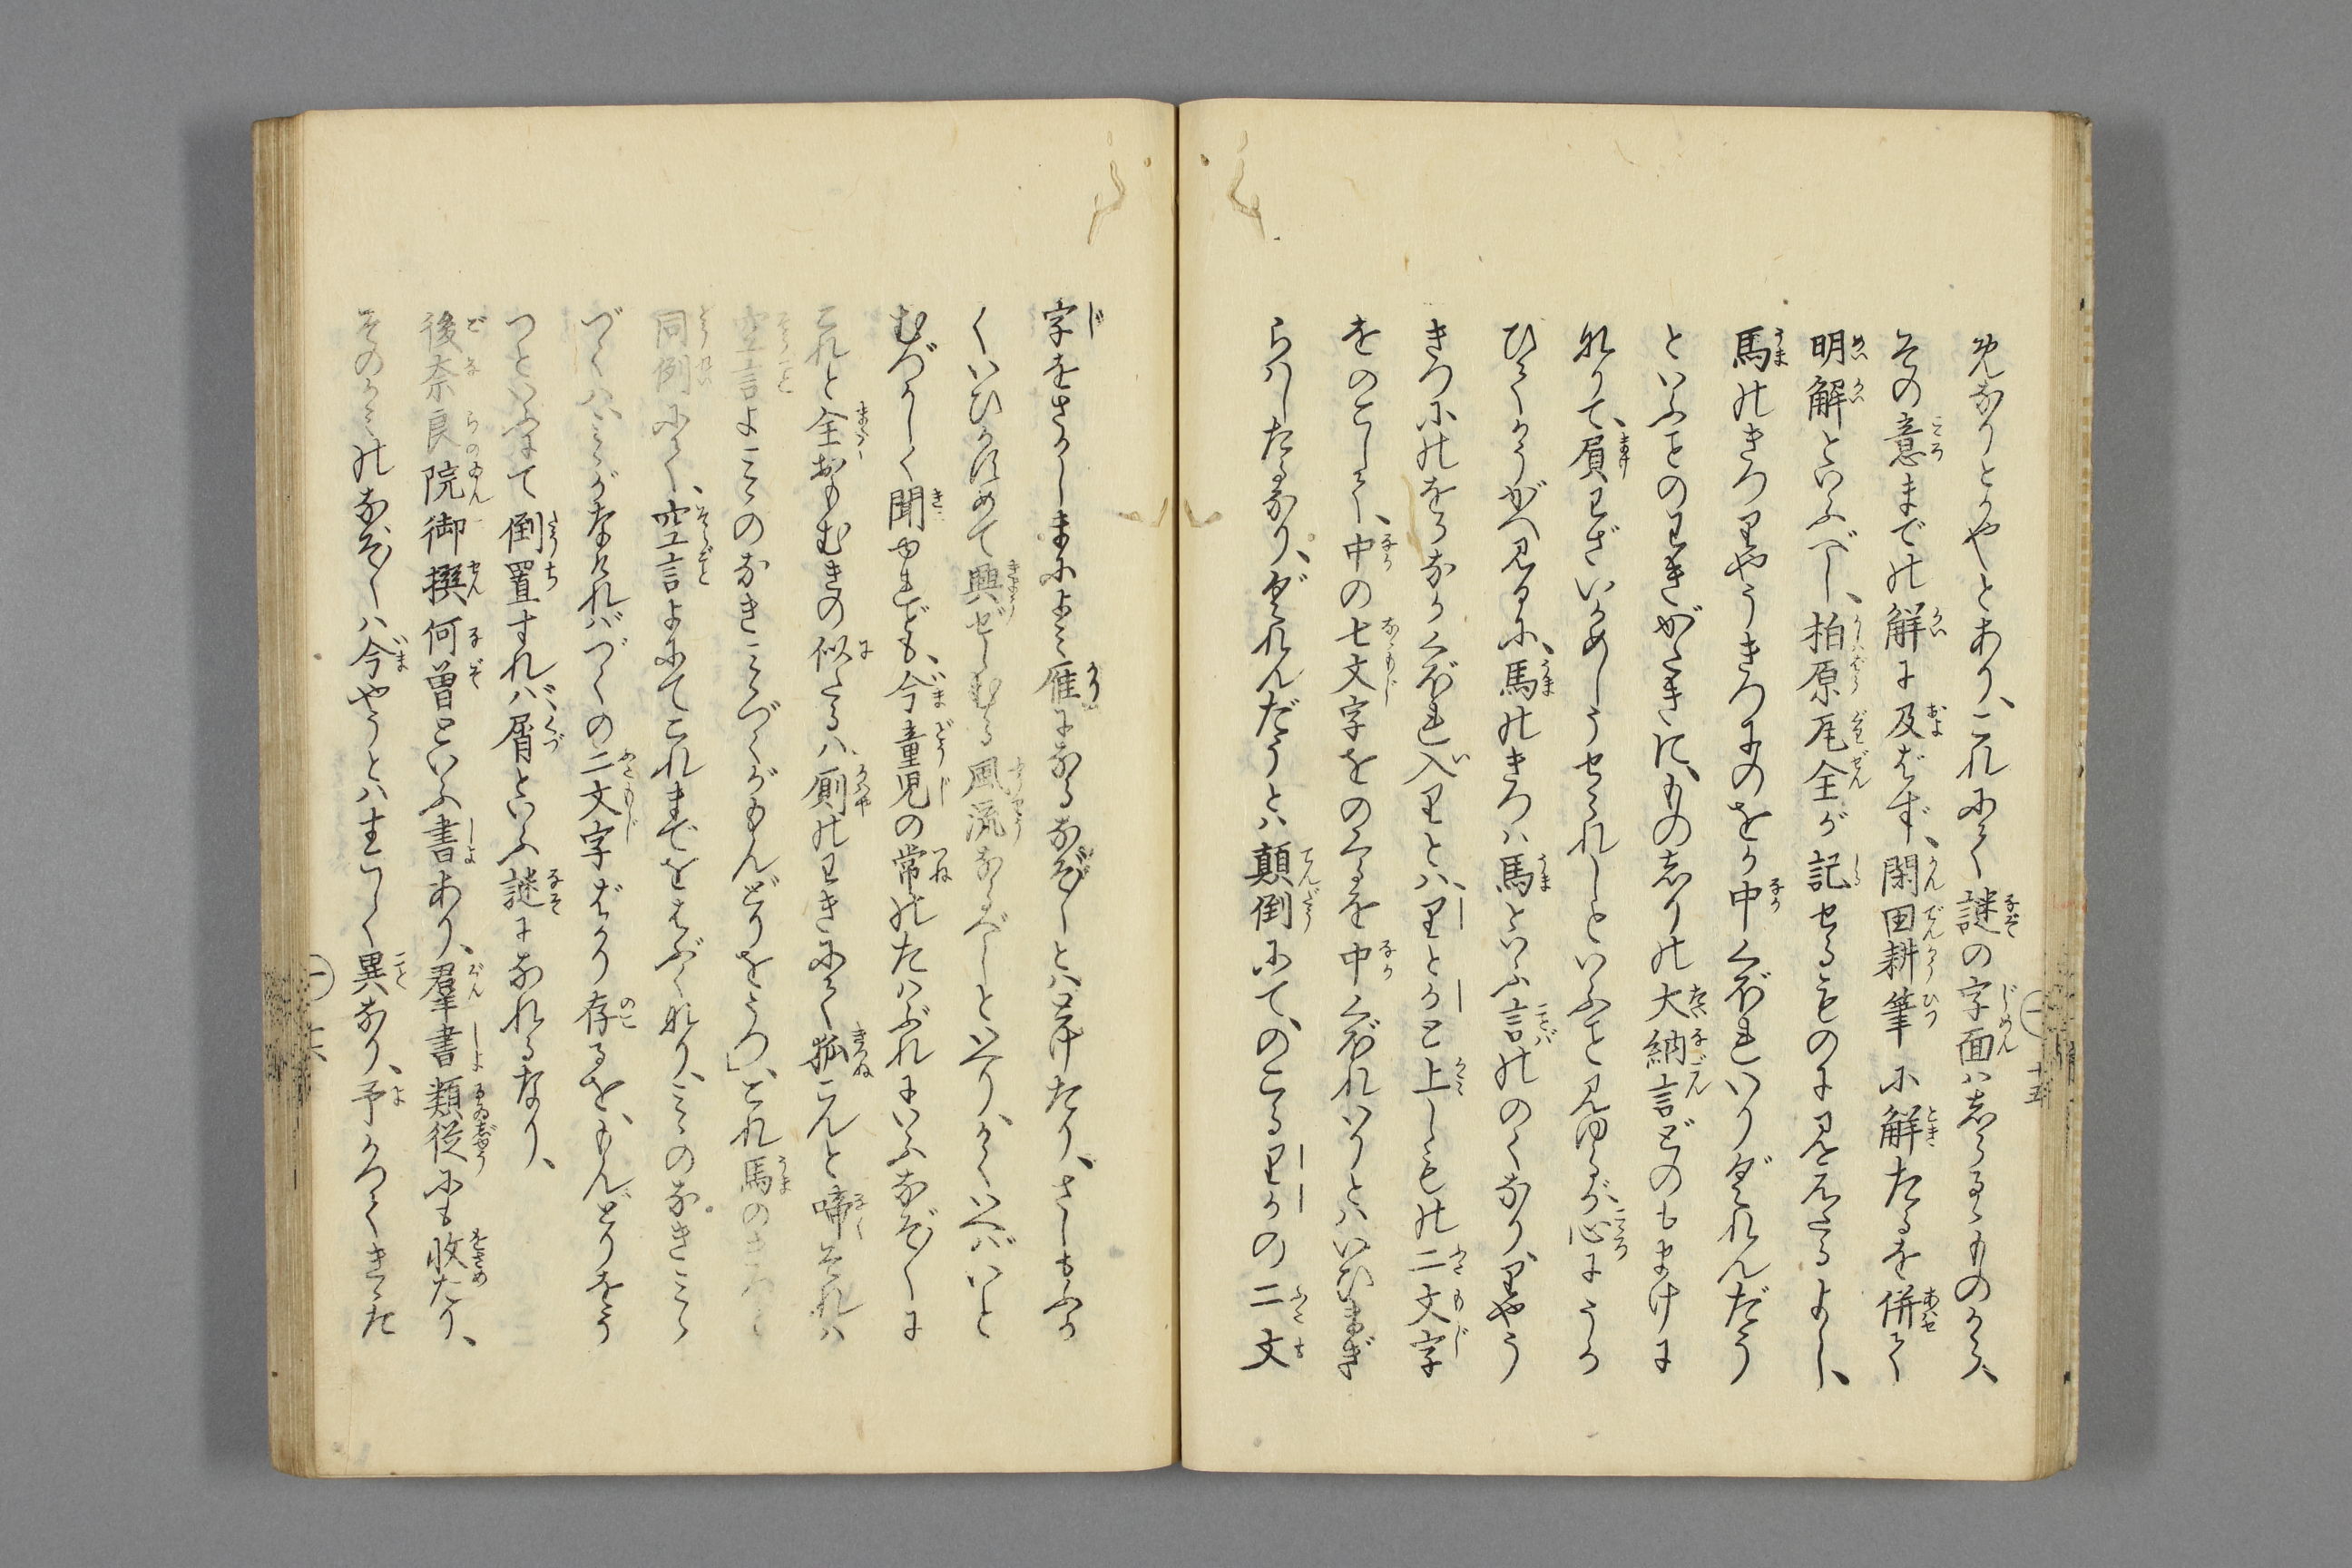 めなりとかやとあり、これにて謎の字面はしらるゝものから、
その意までの解に及ばず、閑田耕筆に解たるを併て
明解といふべし、柏原瓦全が記せるものに見えたるよし、
馬のきつりやうきつにのをか中くぼれいりぐれんだう
といふことのときがたきに、ものしりの大納言どのもまけに
なりて、負わざいかめしうせられしといふこと見ゆるが、心にうか
ひてかうがへ見るに、馬のきつは馬といふ言ののくなり、りやう
きつにのをかなかくぼれ入りとは、りとかと上しもの二文字
をのこして、中の七文字をのくるを中くぼれいりとはいひまぎ
らはしたるなり、ぐれんだうとは顛倒にて、のこるりかの二文
字をさかしまによみ雁になるなぞ〳〵とはときたり、さしもふか
くいひかすめて興ぜしむる風流なるべしといへり、かくいへばいと
むづかしく聞ゆれども、今童児の常のたはぶれにいふなぞ〳〵に
これと全おもむきの似たるは、厠のわきにて狐こんと啼それは
空言よこゝのなきこゝろづくがもんどりをうつ」、これ馬のきつと
同例にて、空言よにてこれまでをはぶくなり、こゝのなきこゝろ
づくは、こゝろがなければづくの二文字ばかり存るを、もんどりをう
つといふにて倒置すれば、屑といふ謎になれるなり、
後奈良院御撰何曽といふ書あり、群書類従にも収たり、
そのかみのなぞ〳〵は今やうとはすこしく異なり、予かつてきゝた